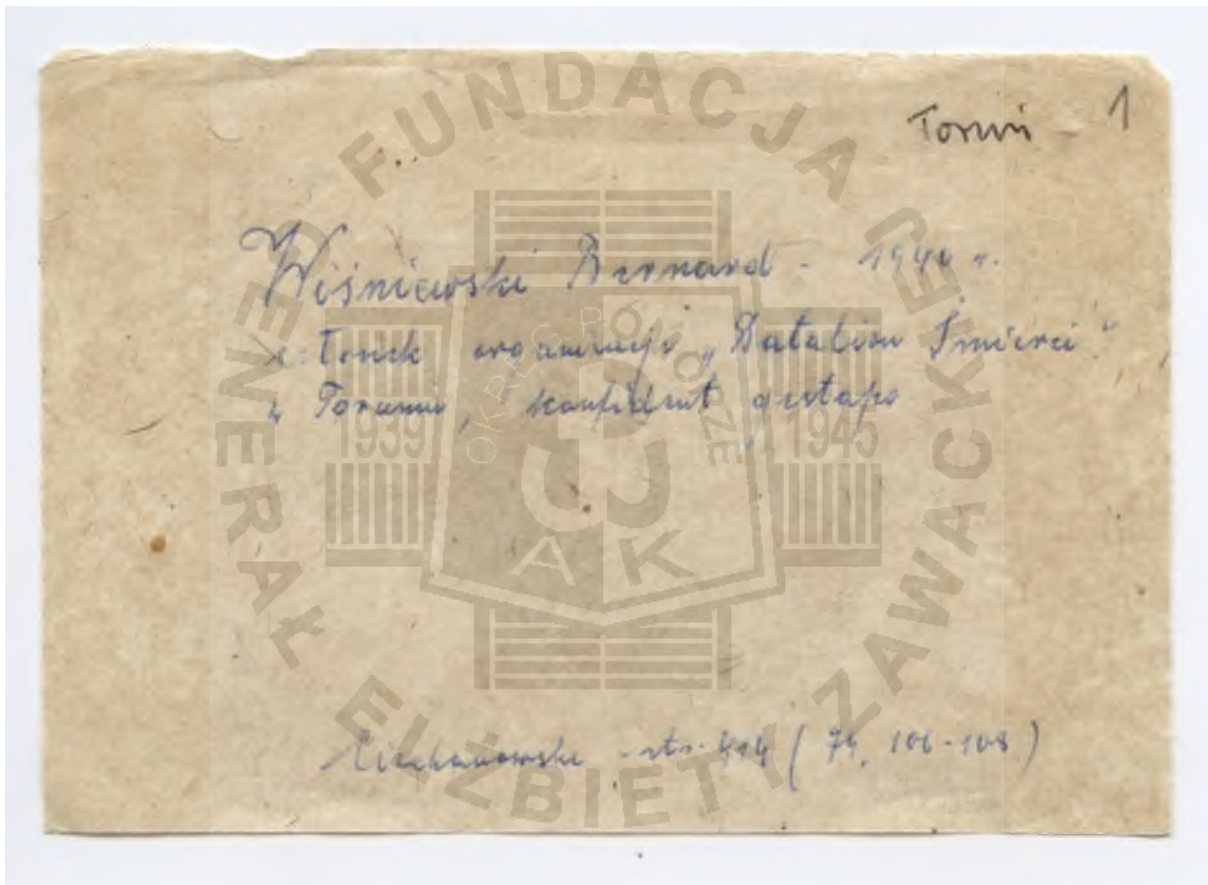 Toruń - 1
Wiśniewski Bernard - 1940 r.
członek organizacji „Batalion Śmierci"
w Toruniu, konfident gestapo
Ciechanowski - str. 414 ( 74, 106-108 )
FUNDACJA GENERAŁ ELŻBIETY ZAWACKIEJ
OKRĘG POMORZE
1939 1945
AK